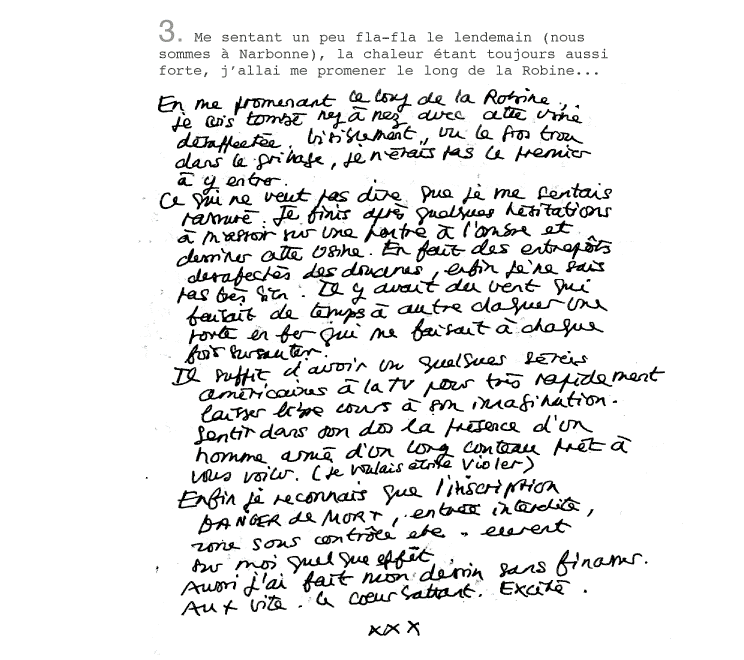 3. Me sentant un peu fla-fla le lendemain (nous
sommes à Narbonne), la chaleur étant toujours aussi
forte, j'allai me promener le long de la Robine...
En me promenant le long de la Robine,
je suis tombé nez à nez avec cette usine
désaffectée. Visiblement, vu le gros trou
dans le grillage, je n'étais pas le premier
à y entrer.
Ce qui ne veut pas dire que je me sentais
rassuré. Je finis après quelques hésitations
à m'asseoir sur une poutre à l'ombre et
dessiner cette usine. En fait des entrepôts
desafectés des douanes, enfin je ne sais
pas très bien. Il y avait du vent qui
faisait de temps à autre claquer une
porte en fer qui me faisait à chaque
fois sursauter.
Il suffit d'avoir vu quelques séries
américaines à la TV pour très rapidement
laisser libre cours à son imagination.
Sentir dans son dos la présence d'un
homme armé d'un long couteau prêt à
vous voiler. (je voulais écrire violer)
Enfin je reconnais que l'inscription
DANGER de MORT, entrée interdite,
zone sous contrôle etc. eurent
sur moi quelque effêt.
Aussi j'ai fait mon dessin sans finasser.
Au + vite. le coeur battant. Excité.
xxx